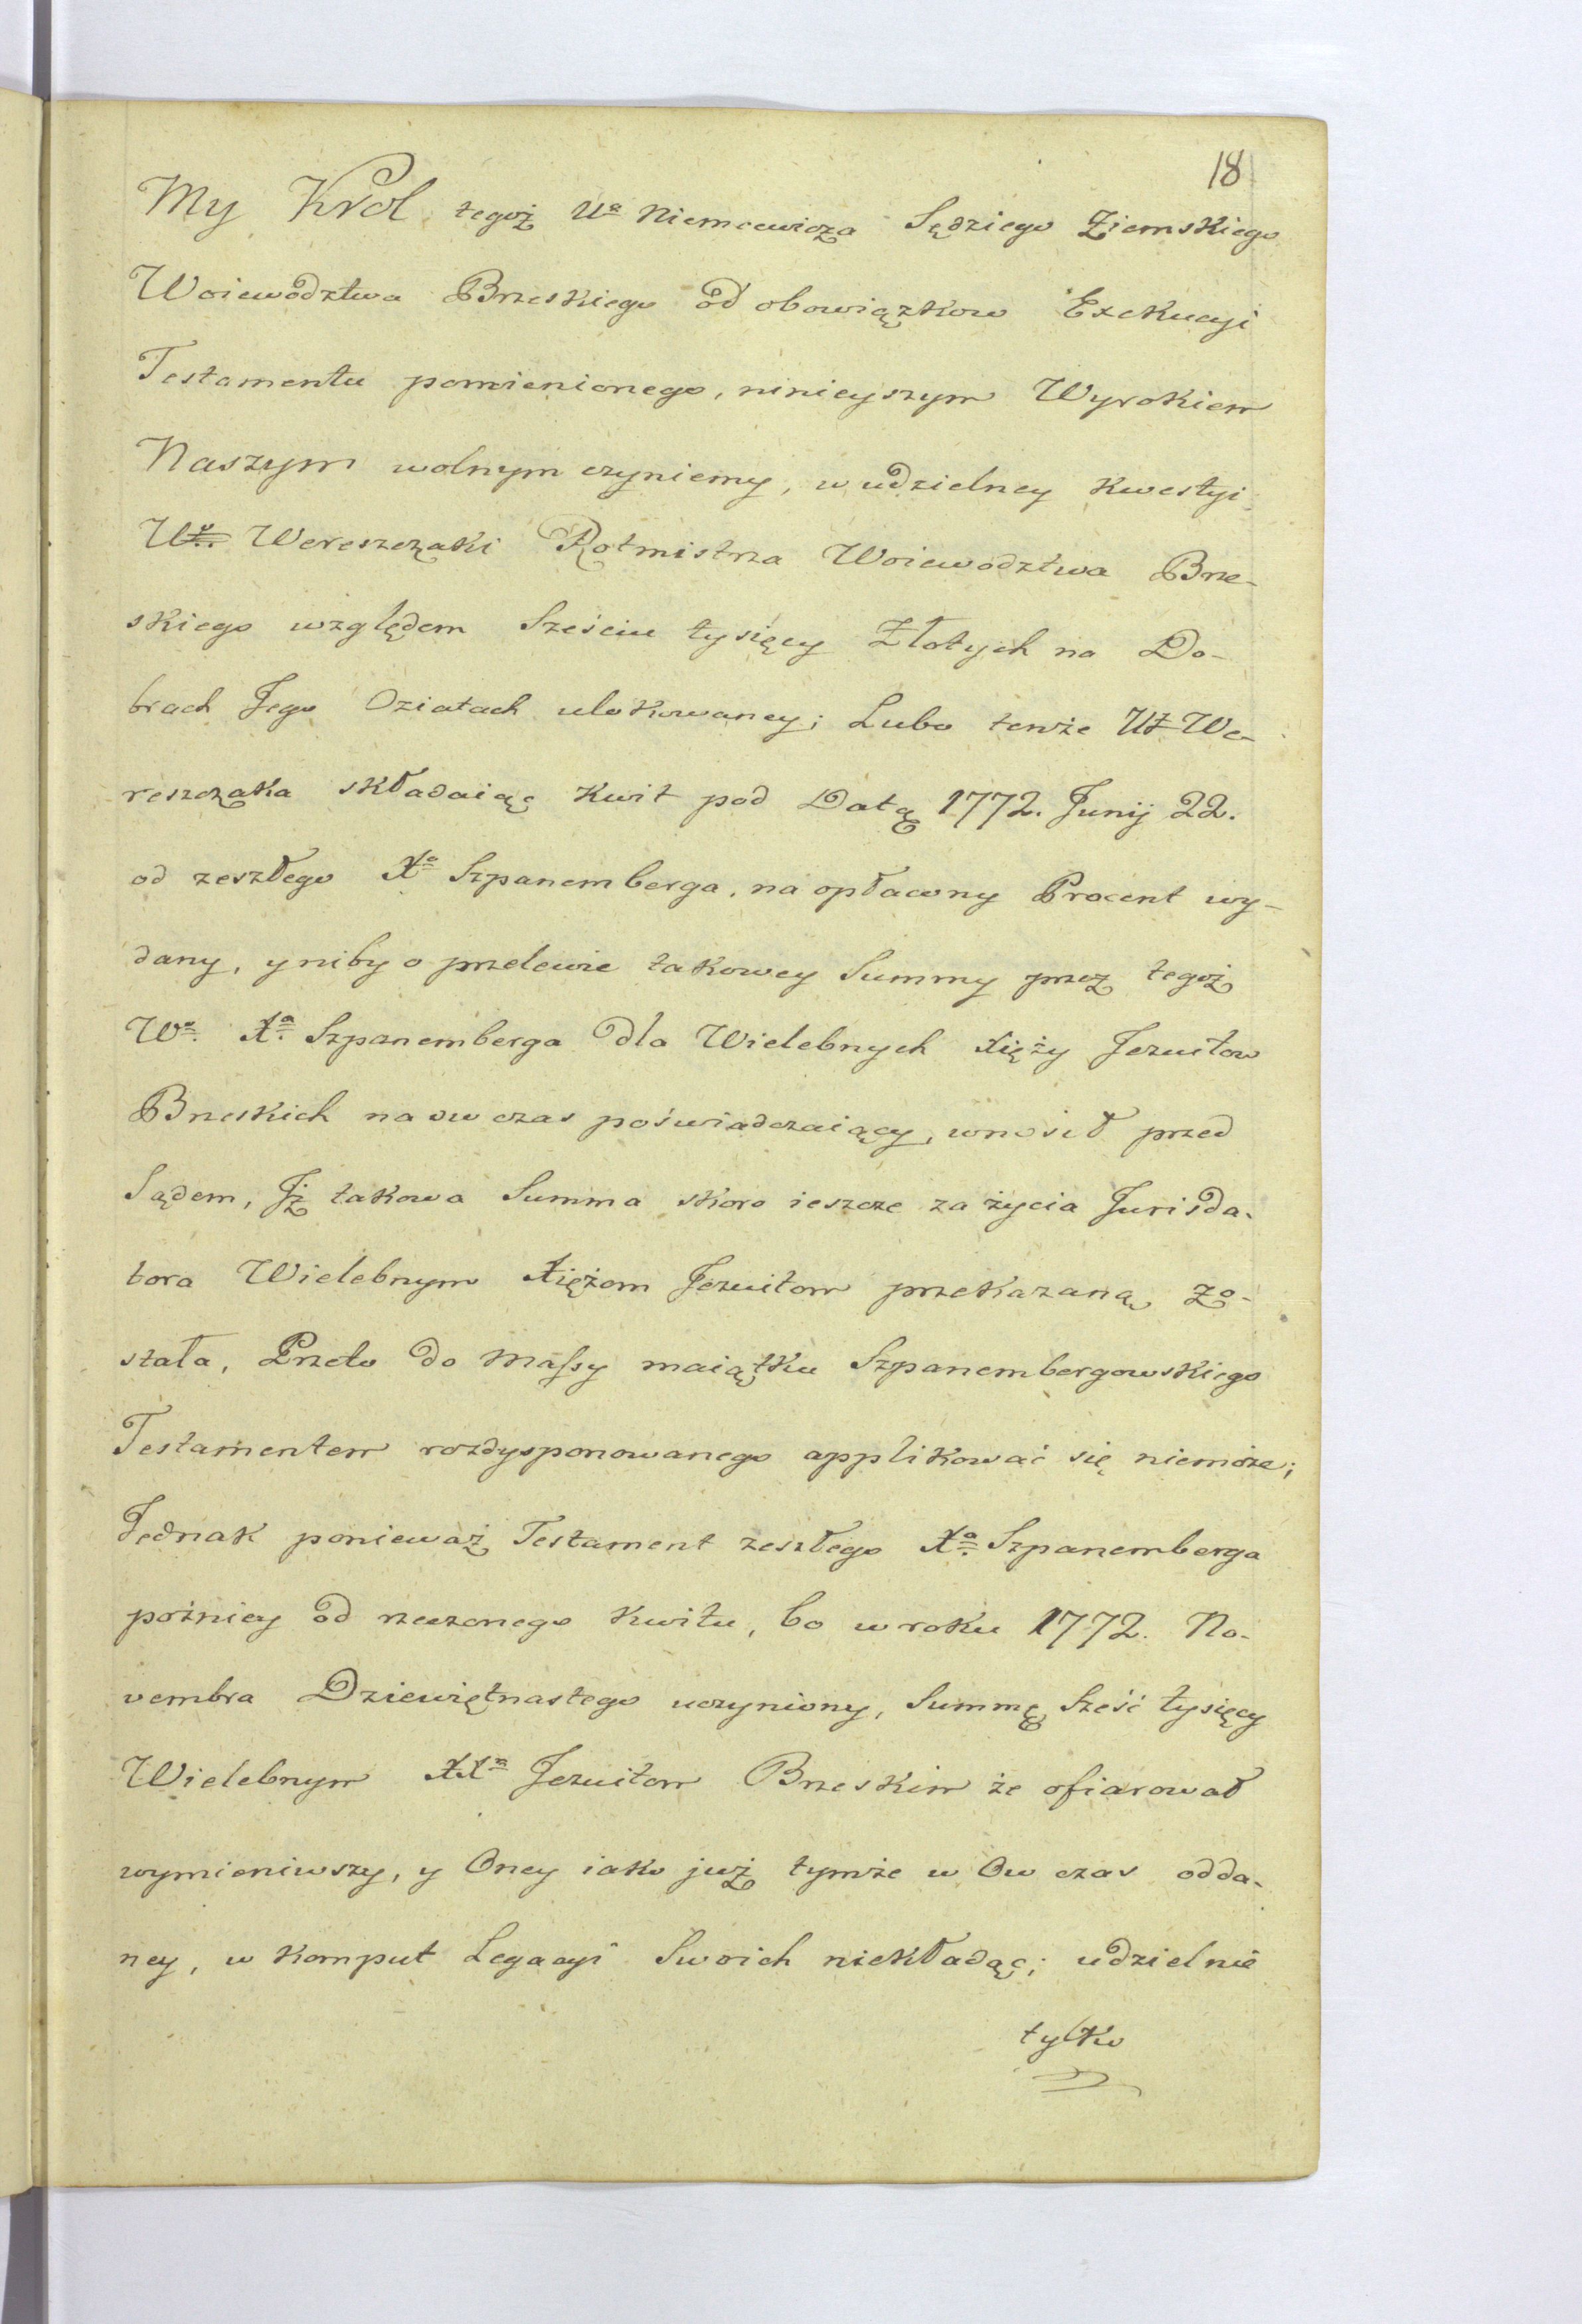 18
My Krol tegoż Ua Niemcewicza Sędziego Ziemskiego
Woiewodztwa Brzeskiego od obowiązkow Exekucyi
Testamentu pomienionego, ninieyszym Wyrokiem
Naszym wolnym czyniemy, w udzielney kwestyi
Wereszczaki Rotmistrza Woiewodztwa Brze-
skiego względem Sześciu tysięcy Złotych na Do-
brach Jego Oziatach ulokowaney; Lubo tenże Ur We-
reszczaka składaiąc kwit pod Datą 1772. Junij 22.
od zeszłego Xa Szpanemberga, na opłacony Procent wy-
dany, y niby o przelewie takowey Summy przez tegoż
Wa. Xa. Szpanemberga dla Wielebnych Xięży Jezuitow
Brzeskich na ow czas poświadczaiący, wnosił przed
Sądem, Iż takowa Summa skoro ieszcze za życia Jurisda-
tora Wielebnym Xiężom Jezuitom przekazaną zo-
stała, Przeto do Massy maiątku Szpanembergowskiego
Testamentem rozdysponowanego applikować się niemoże;
Jednak ponieważ Testament zeszłego Xa. Szpanemberga
poźniey od rzeczonego kwitu, bo w roku 1772. No-
vembra Dziewiętnastego uczyniony, Summę Sześć tysięcy
Wielebnym XXm Jezuitom Brzeskim że ofiarował
wymieniwszy, y Oney iako już tymże w Ow czas odda-
ney, w komput Legacyi Swoich niekładąc; udzielnie
tylko